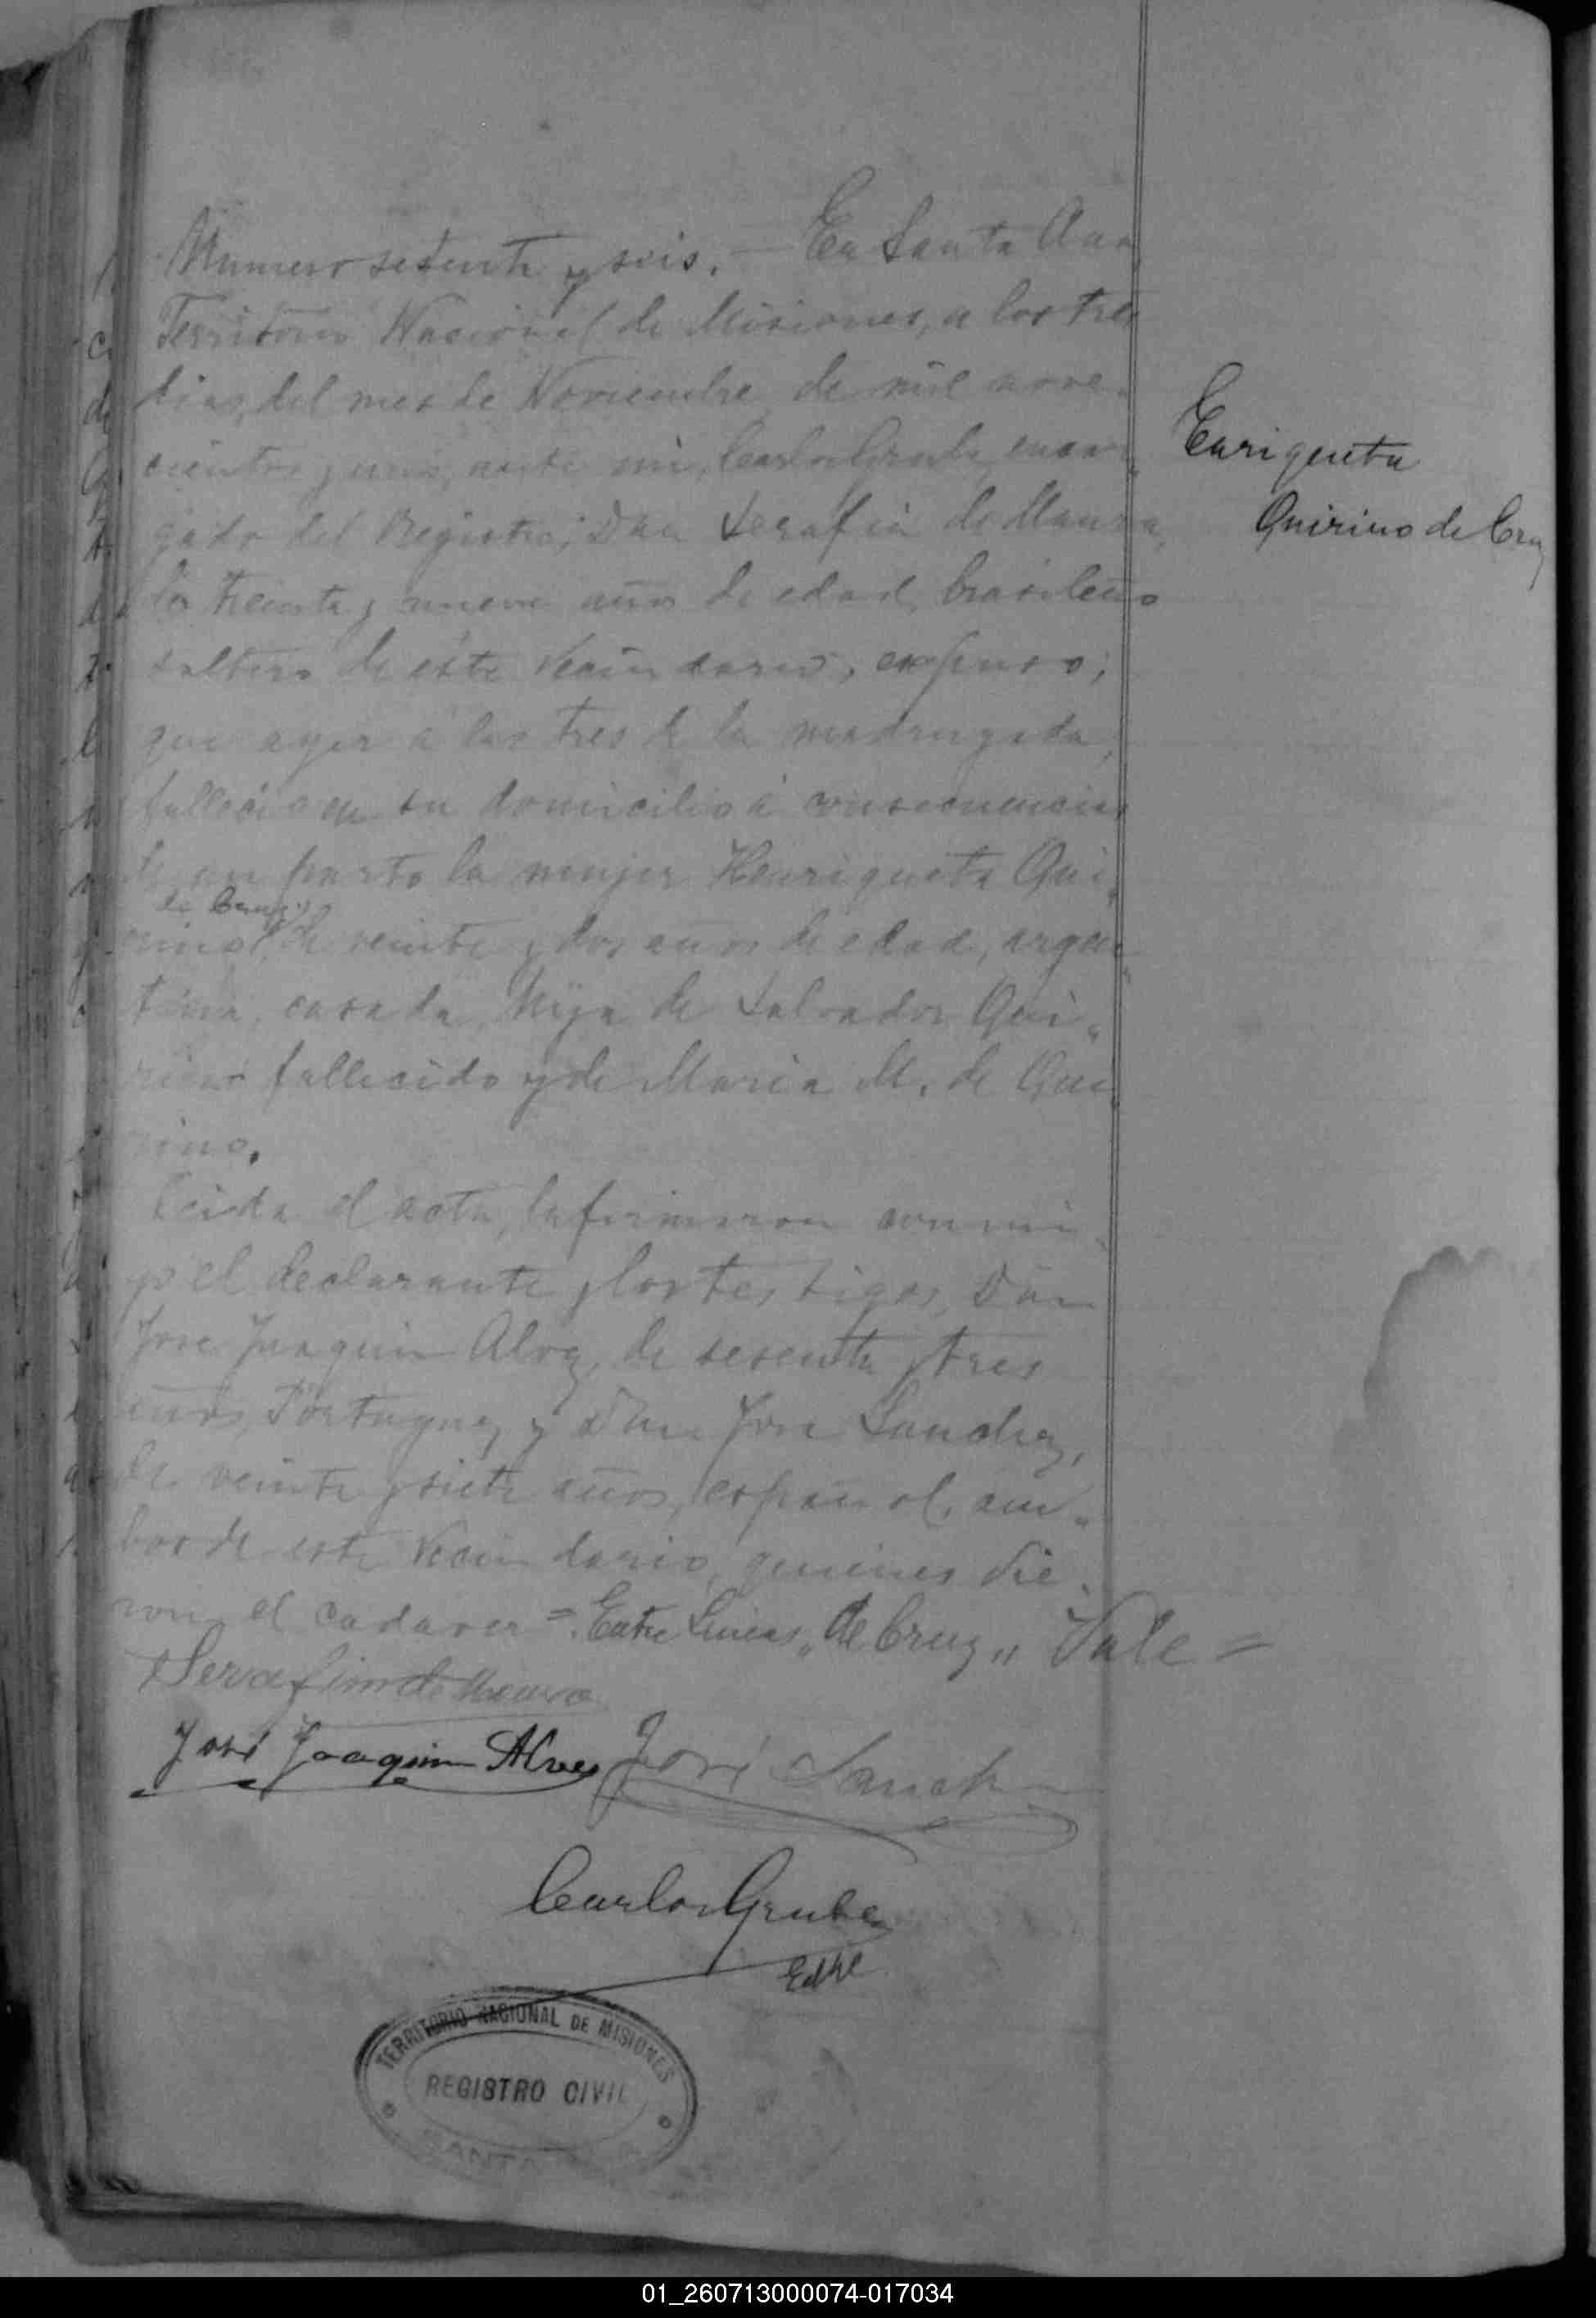 Numero setenta y seis. — En Santa Ana
Territorio Nacional de Misiones, a los tres
dias, del mes de Noviembre de mil nove-
cientos y uno, ante mi, Carlos Grube, encar-
gado del Registro; Don Serafin de Moura,
de treinta y nueve años de edad, brasileño
soltero de este vecindario, expuso;
que ayer á las tres de la madrugada,
falleció en su domicilio á consecuencias
de un parto la mujer Henriqueta Qui-
de Cruz
rino, de veinte y dos años de edad, argen-
tina, casada, hija de Salvador Qui-
rino fallecido y de Maria M. de Qui-
rino.
Leida el acta, la firmaron conmi-
go el declarante y los testigos, Don
Jose Joaquin Alvez, de sesenta y tres
años, Portuguez y Don Jose Sanchez,
de veinte y siete años, español, am-
bos de este vecindario, quienes vie-
ron el cadaver =. Entre Lineas „de Cruz„ Vale =
Serafim de Moura
José Joaquim Alves José Sanch
Carlos Grube
Enriqueta
Quirino de Cruz
TERRITORIO NACIONAL DE MISIONES
REGISTRO CIVIL
SANTA
01_260713000074-017034